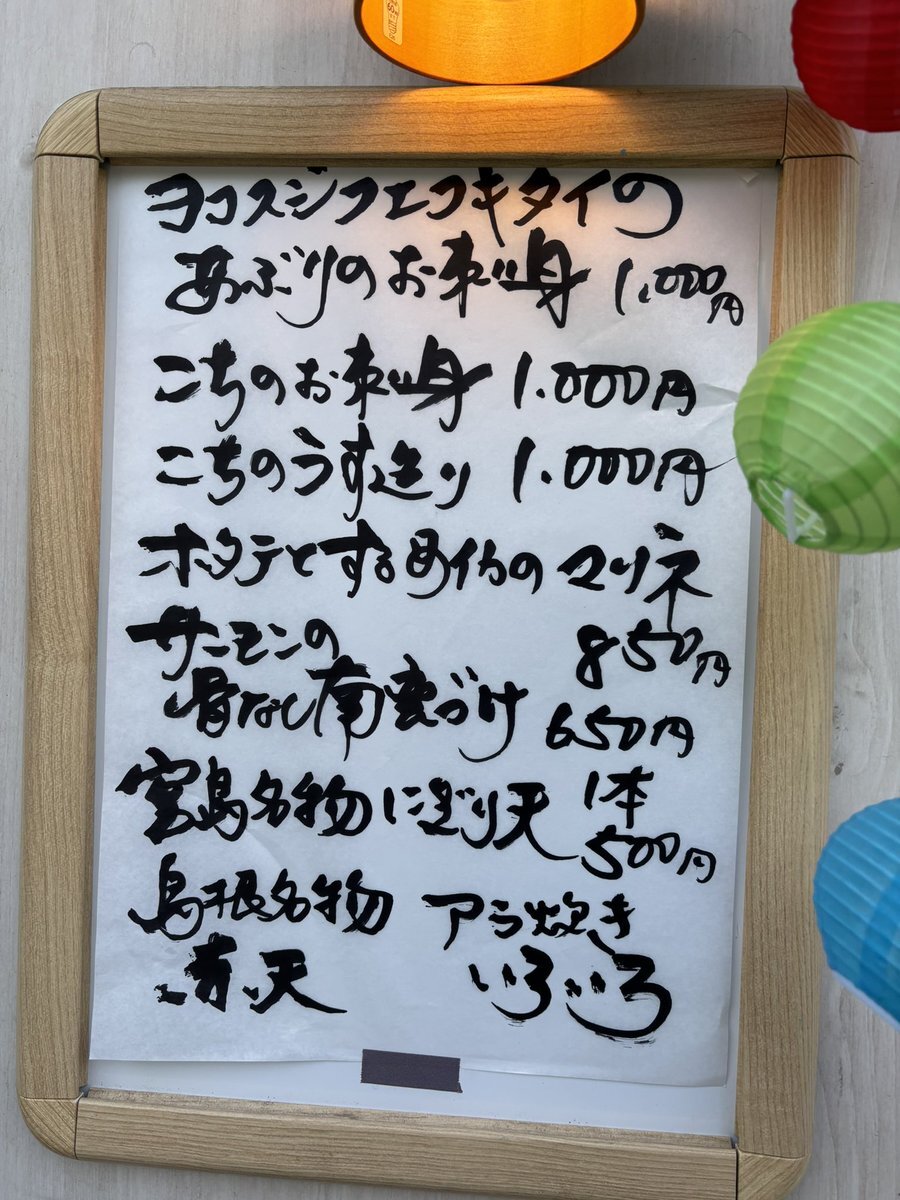 ヨコスジフエフキタイの
あぶりのお刺身 1.000円
こちのお刺身 1.000円
こちのうす造り 1.000円
ホタテとするめイカのマリネ
850円
サーモンの
骨なし南蛮づけ 650円
宮島名物にぎり天 1本
500円
島根名物
赤天
アラ炊き
いろいろ